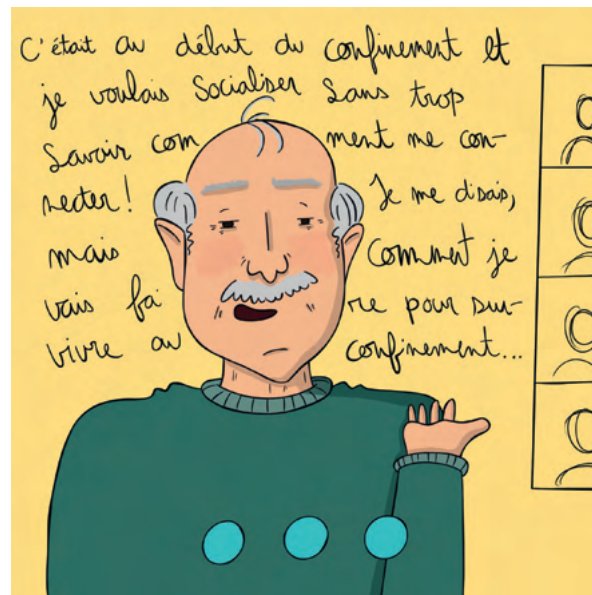 C'était au début du confinement et
je voulais Socialiser Sans trop
Savoir com ment me con-
necter! Je me disais,
mais Comment je
vais fai re pour sur-
vivre au confinement...